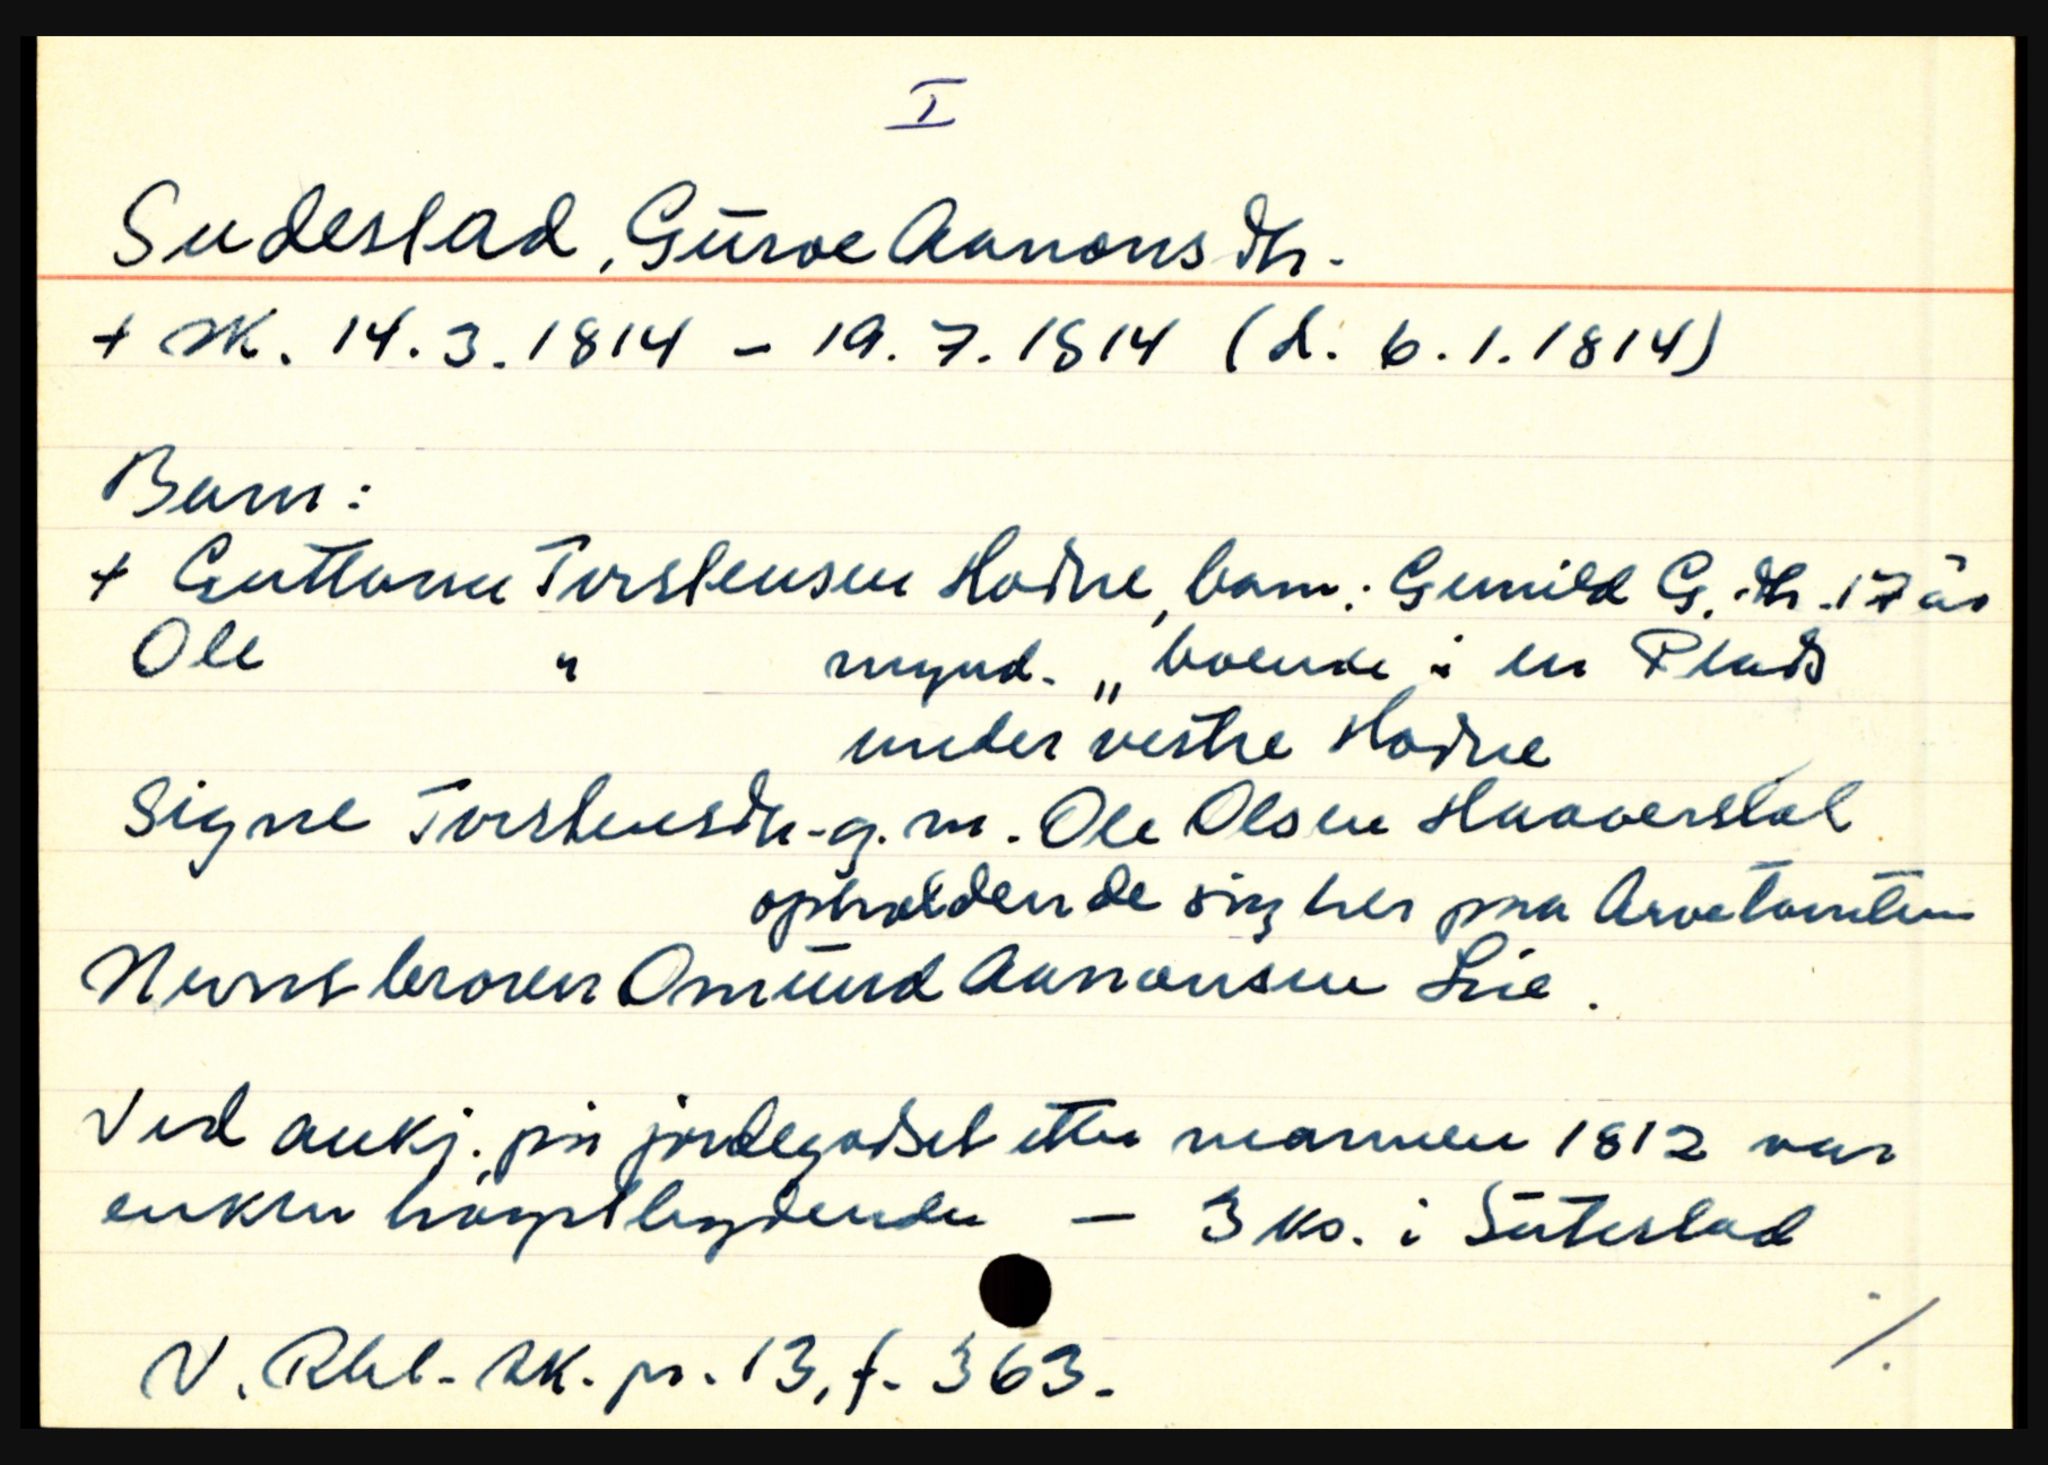 I
Sudeslad, Güroe Aanons dtr.
+ sk. 14.3.1814 - 19.7.1814 (d. 6.1.1814)
Barn:
+ Guttorm Torstensen Hodne, barn: Gunild G. dtr. 17 år
Ole " mynd. „ boende i en Plads
under vestre Hodne
Signe Torstensdtr. g. m. Ole Olsen Haaverstøl
opholdende sig her paa Arvetomten
Nevnt broren Omünd Aanonsen Lie.
Ved aukj. på jordegodset etter mannen 1812 var
enken høgstbydende - 3 ks. i Suteslad
V. Rbl. sk. pr. 13, f. 363.
./.